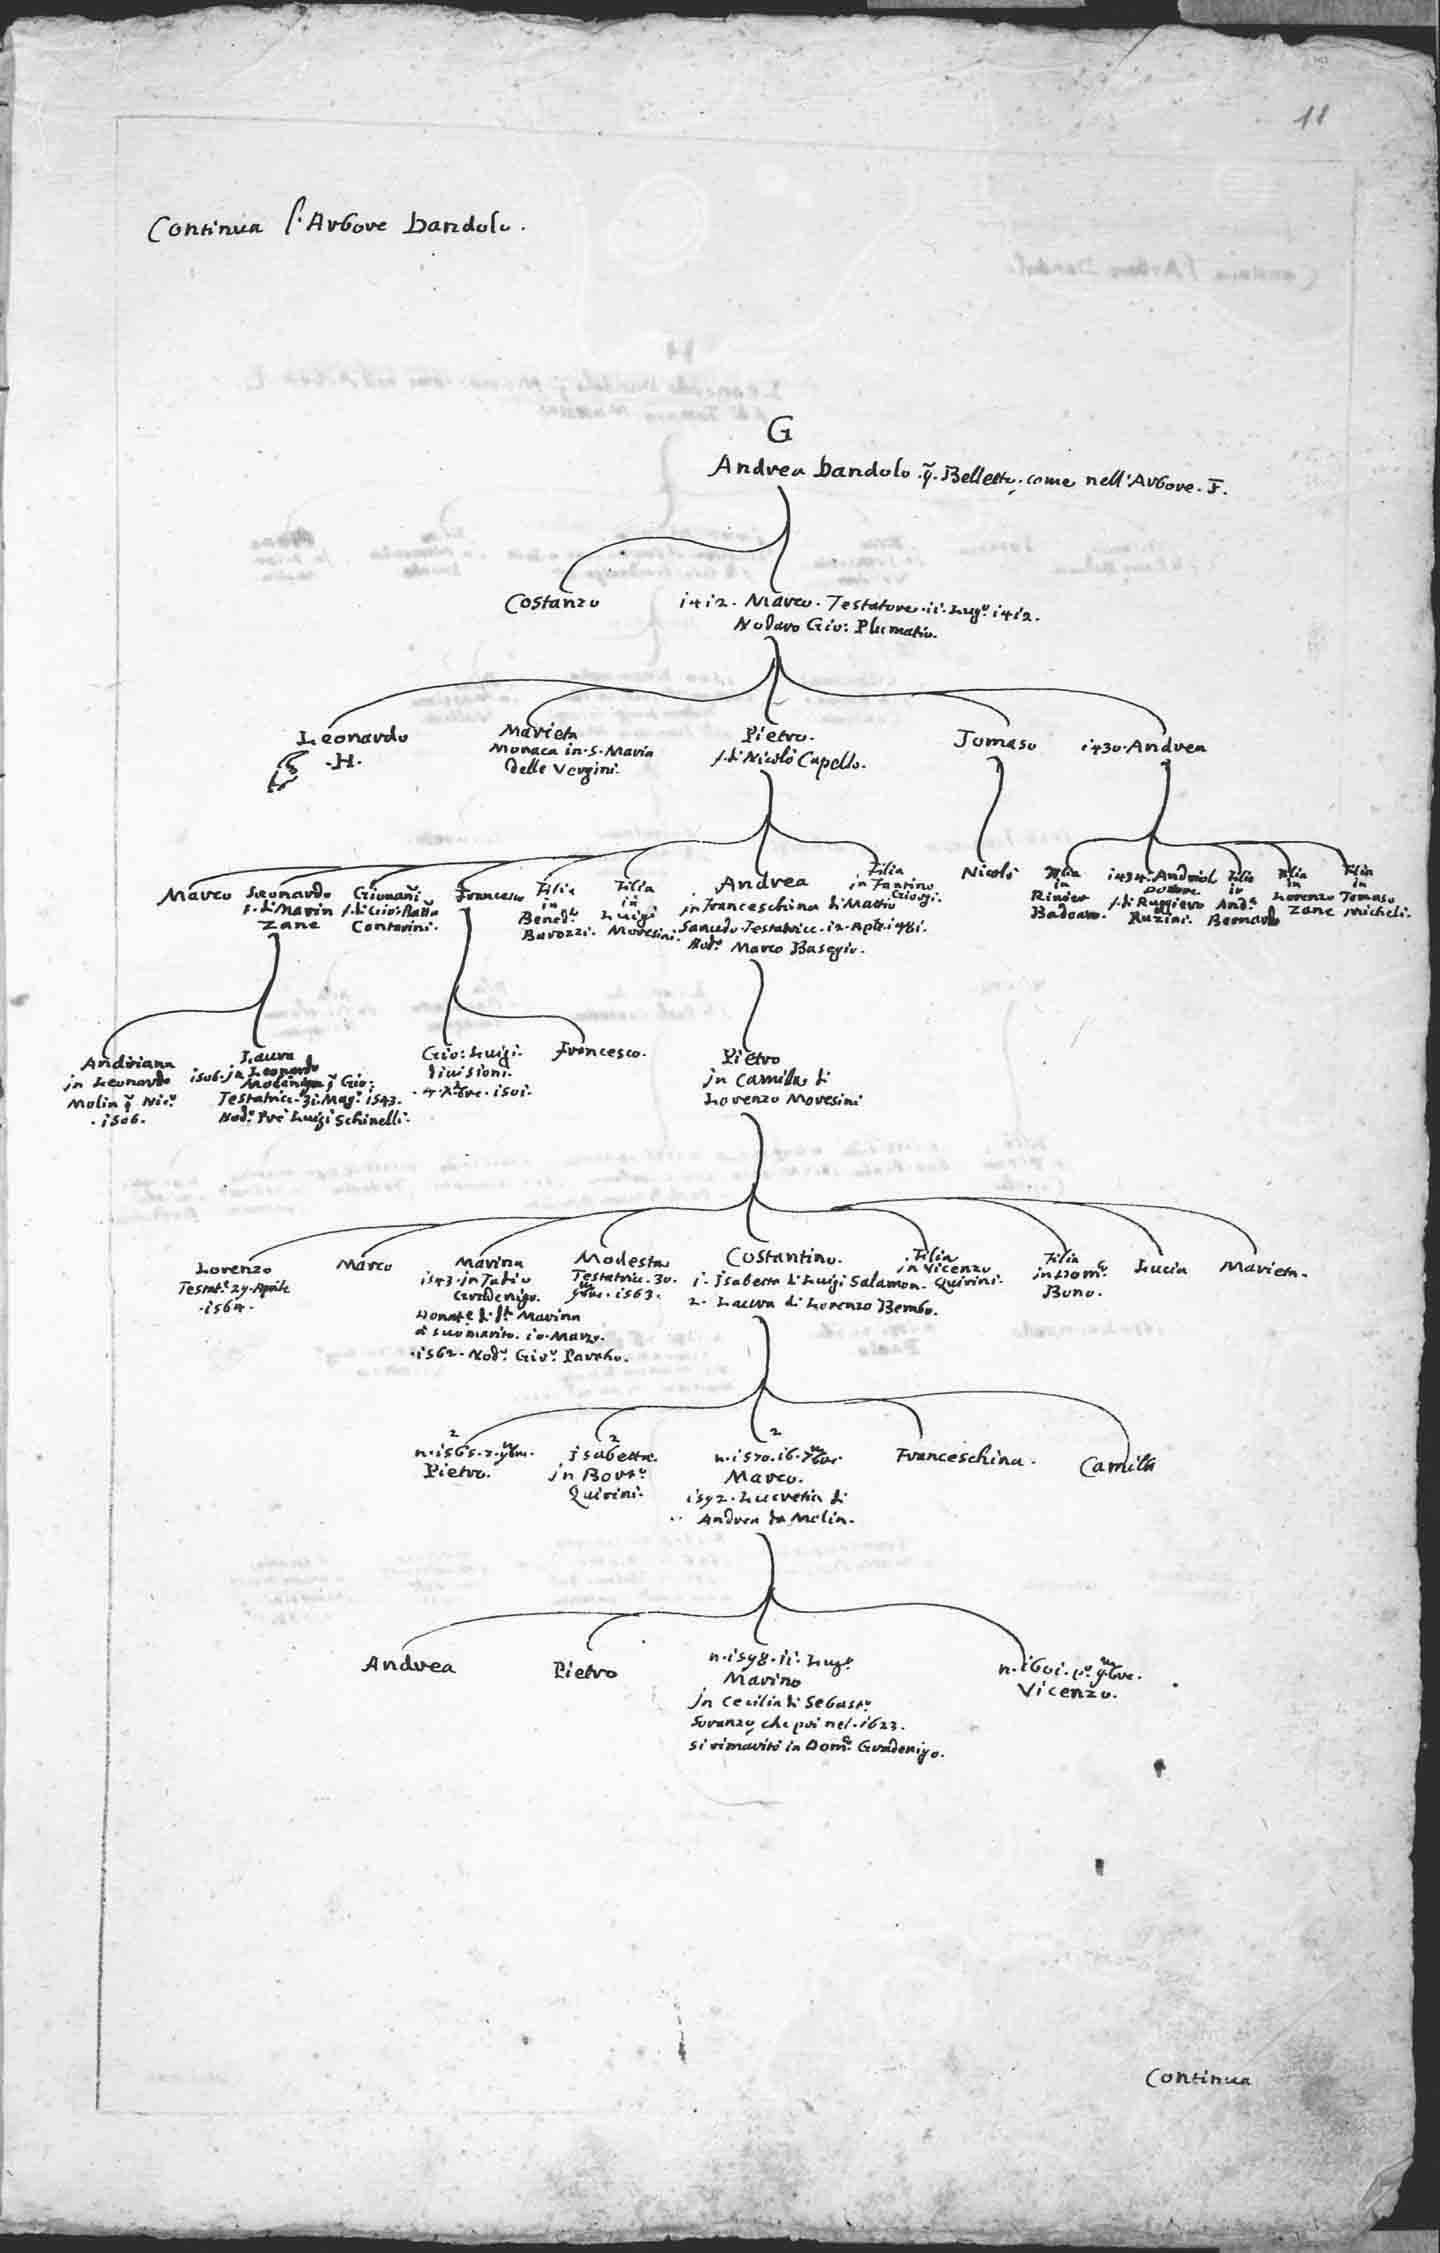 11
Continua l'Arbore Dandolo.
G
Andrea Dandolo q. Belletto, come nell'Arbore. F.
Costanzo
1412. Marco. Testatore. 11. Lugo 1412.
Nodaro Gio: Plumatio.
Leonardo
.H.
Marieta
Monaca in. S. Maria
delle Vergini.
Pietro.
f. di Nicolò Capello.
Tomaso
1430. Andrea
Marco
Leonardo
f. di Marin
Zane
Giouani
f. di Gio: Batta
Contarini.
Francesco
Filia
in
Benedo
Barozzi.
Filia
in
Luigi
Moresini.
Andrea
in Franceschina di Marco
Sanudo. Testatrice. 12. Aple. 1481.
Nodo Marco Basegio.
Filia
in Fantino
Giorgi.
Nicolò
Filia
in
Rinier
Badoaro.
1434. Andriol
Dottore
f. di Ruggiero
Ruzini.
Filia
in
Anda
Bernardo
Filia
in
Lorenzo
Zane
Filia
in
Tomaso
Micheli.
Andriana
in Leonardo
Molin q. Nico
.1506.
Laura
1506. in Leonardo
Mocenigo q. Gio:
Testatrice. 31. Mago 1543.
Nodo Pre Luigi Schinelli.
Gio: Luigi.
diuisioni.
.4. Xbre. 1501.
Francesco.
Pietro
in Camilla di
Lorenzo Moresini
Lorenzo
Testato 29. Aprile
.1564.
Marco
Marina
1543. in Fabio
Gradenigo.
Donatè di da Marina
à suo marito. 10. Marzo.
.1562. Nodo Gioo Parcho.
Modesta
Testatrice. 30.
9bre. 1563.
Costantino.
1. Isabetta di Luigi Salamon.
2. Laura di Lorenzo Bembo.
Filia
in Vicenzo
Quirini.
Filia
in Domco
Bono.
Lucia
Marieta.
2
n. 1565. 2. 9bre.
Pietro.
2
Isabetta.
in Borto
Quirini.
2
n. 1570. 16. 7bre.
Marco.
1592. Lucretia di
Andrea da Molin.
Franceschina.
Camilla
Andrea
Pietro
n. 1598. 11. Lugo
Marino
in Cecilia di Sebasto
Soranzo, che poi nel. 1623.
si rimaritò in Domco Gradenigo.
n. 1601. po 9bre.
Vicenzo.
Continua